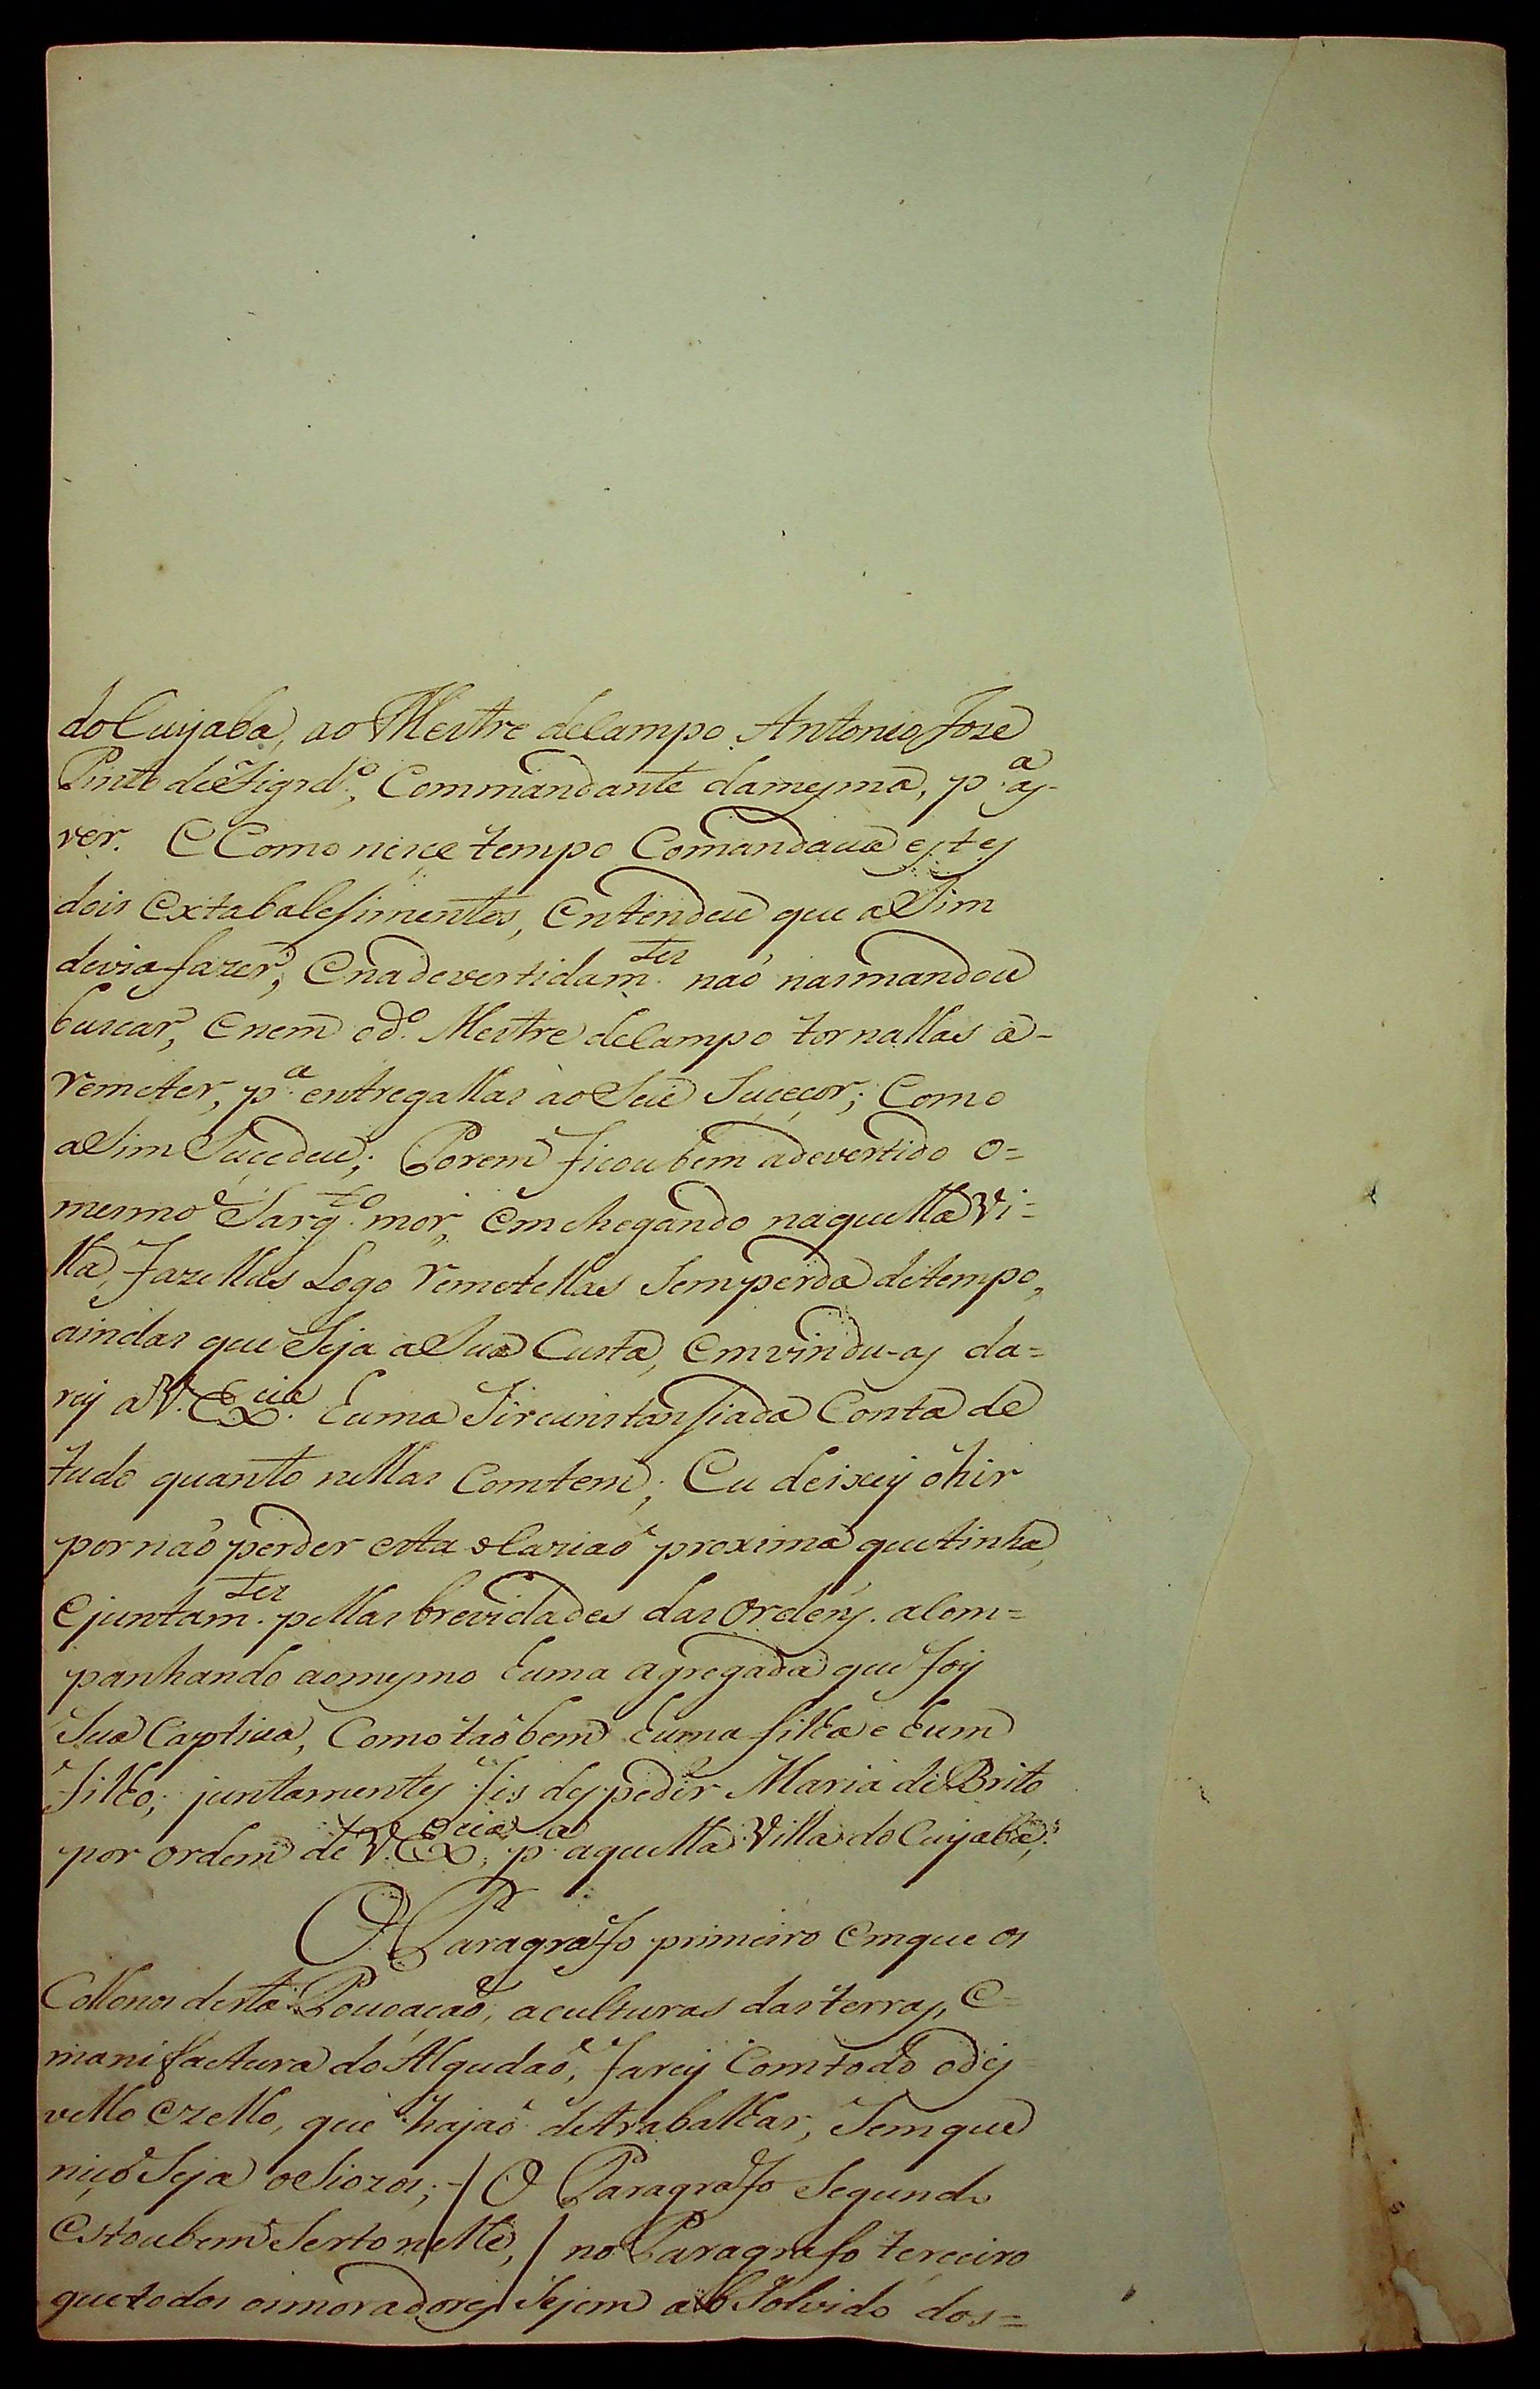 do Cuyaba, ao Mestre de Campo Antonio Joze
Pinto de Figrd.º, Commandante da mesma, p.ª as
ver. E Como niçe tempo Comandaua estes
dois Extabalesimentos, Entendeu que aSim
devia fazer, Enadevertidam.tes naõ nas mandou
buscar, Enem od.º Mestre de Campo tornallas a-
remeter, p.ª entregallas ao Seu Suçeçor; Como
aSim Sucedeu; Porem ficou bem adevertido o=
mesmo Sarg.to mor, Em chegando naquella Vi=
lla, fazellas Logo remetellas Sem perda de tempo,
aindas que Seja a Sua Custa, Em vindu-as da=
rey a V. Ex.cia huma Sircunstansiada Conta de
tudo quanto nellas Comtem; Eu deixey óhir
por naõ perder esta oCaziaõ proxima que tinha,
E juntam.tes pellas brevidades das Ordẽns. aCom=
panhando ao mesmo huma agregada que foy
Sua Captiua, Como taõ bem huma filha e hum
filho; juntamentes fis despedir Maria de Brito
por ordem de V. Ex.cia, p.ª aquella Villa do Cuyaba;
O Paragrafo primeiro Em que os
Collonos desta Pouoaçaõ, aculturas das terras, E=
manifactura do Algudaõ, farey Com todo odes
vello Ezello, que hajaõ de trabalhar, Sem que
niçó Seja oSiozos; / O Paragrafo Segundo
Estou bem Serto nelle, / no Paragrafo terceiro
que todos os moradores Sejem abSolvido dos=